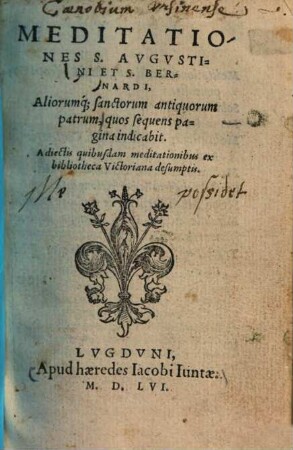 Cœnobium Vrsinense
MEDITATIO-
NES S. AVGVSTI-
NI ET S. BER-
NARDI,
Aliorumq; sanctorum antiquorum
patrum, quos sequens pa-
gina indicabit.
Adiectis quibusdam meditationibus ex
bibliotheca Victoriana desumptis.
Me possidet
LVGDVNI,
Apud hæredes Iacobi Iuntæ.
M. D. LVI.